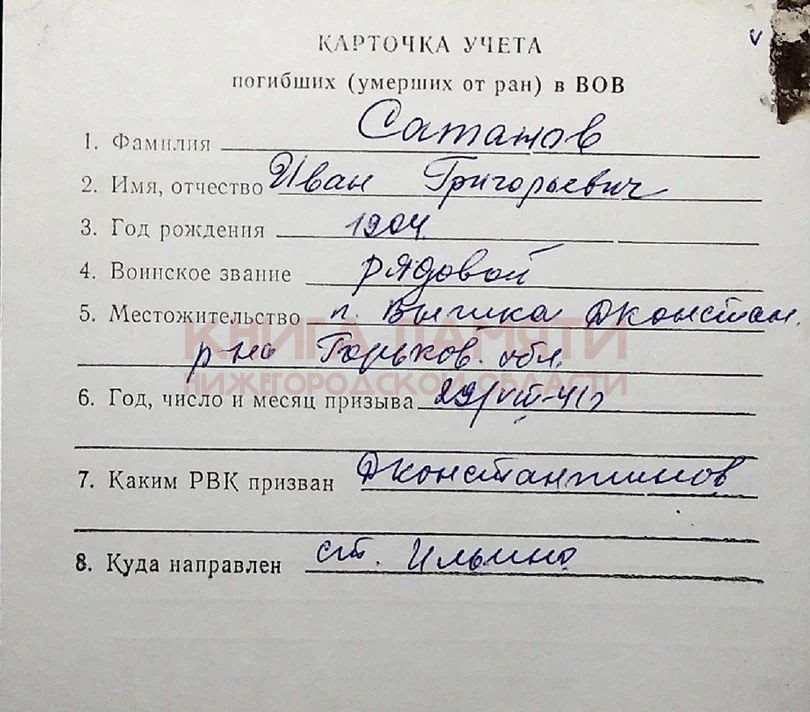 КАРТОЧКА УЧЕТА
погибших (умерших от ран) в ВОВ
1. Фамилия Сатанов
2. Имя, отчество Иван Григорьевич
3. Год рождения 1904
4. Воинское звание рядовой
5. Местожительство п. Дконстан.
р-на Горьков. обл.
КНИГА ПАМЯТИ
НИЖЕГОРОДСКОЙ ОБЛАСТИ
6. Год, число и месяц призыва 29/VIII-41г
7. Каким РВК призван Дконстантинов
8. Куда направлен ст. Ильино